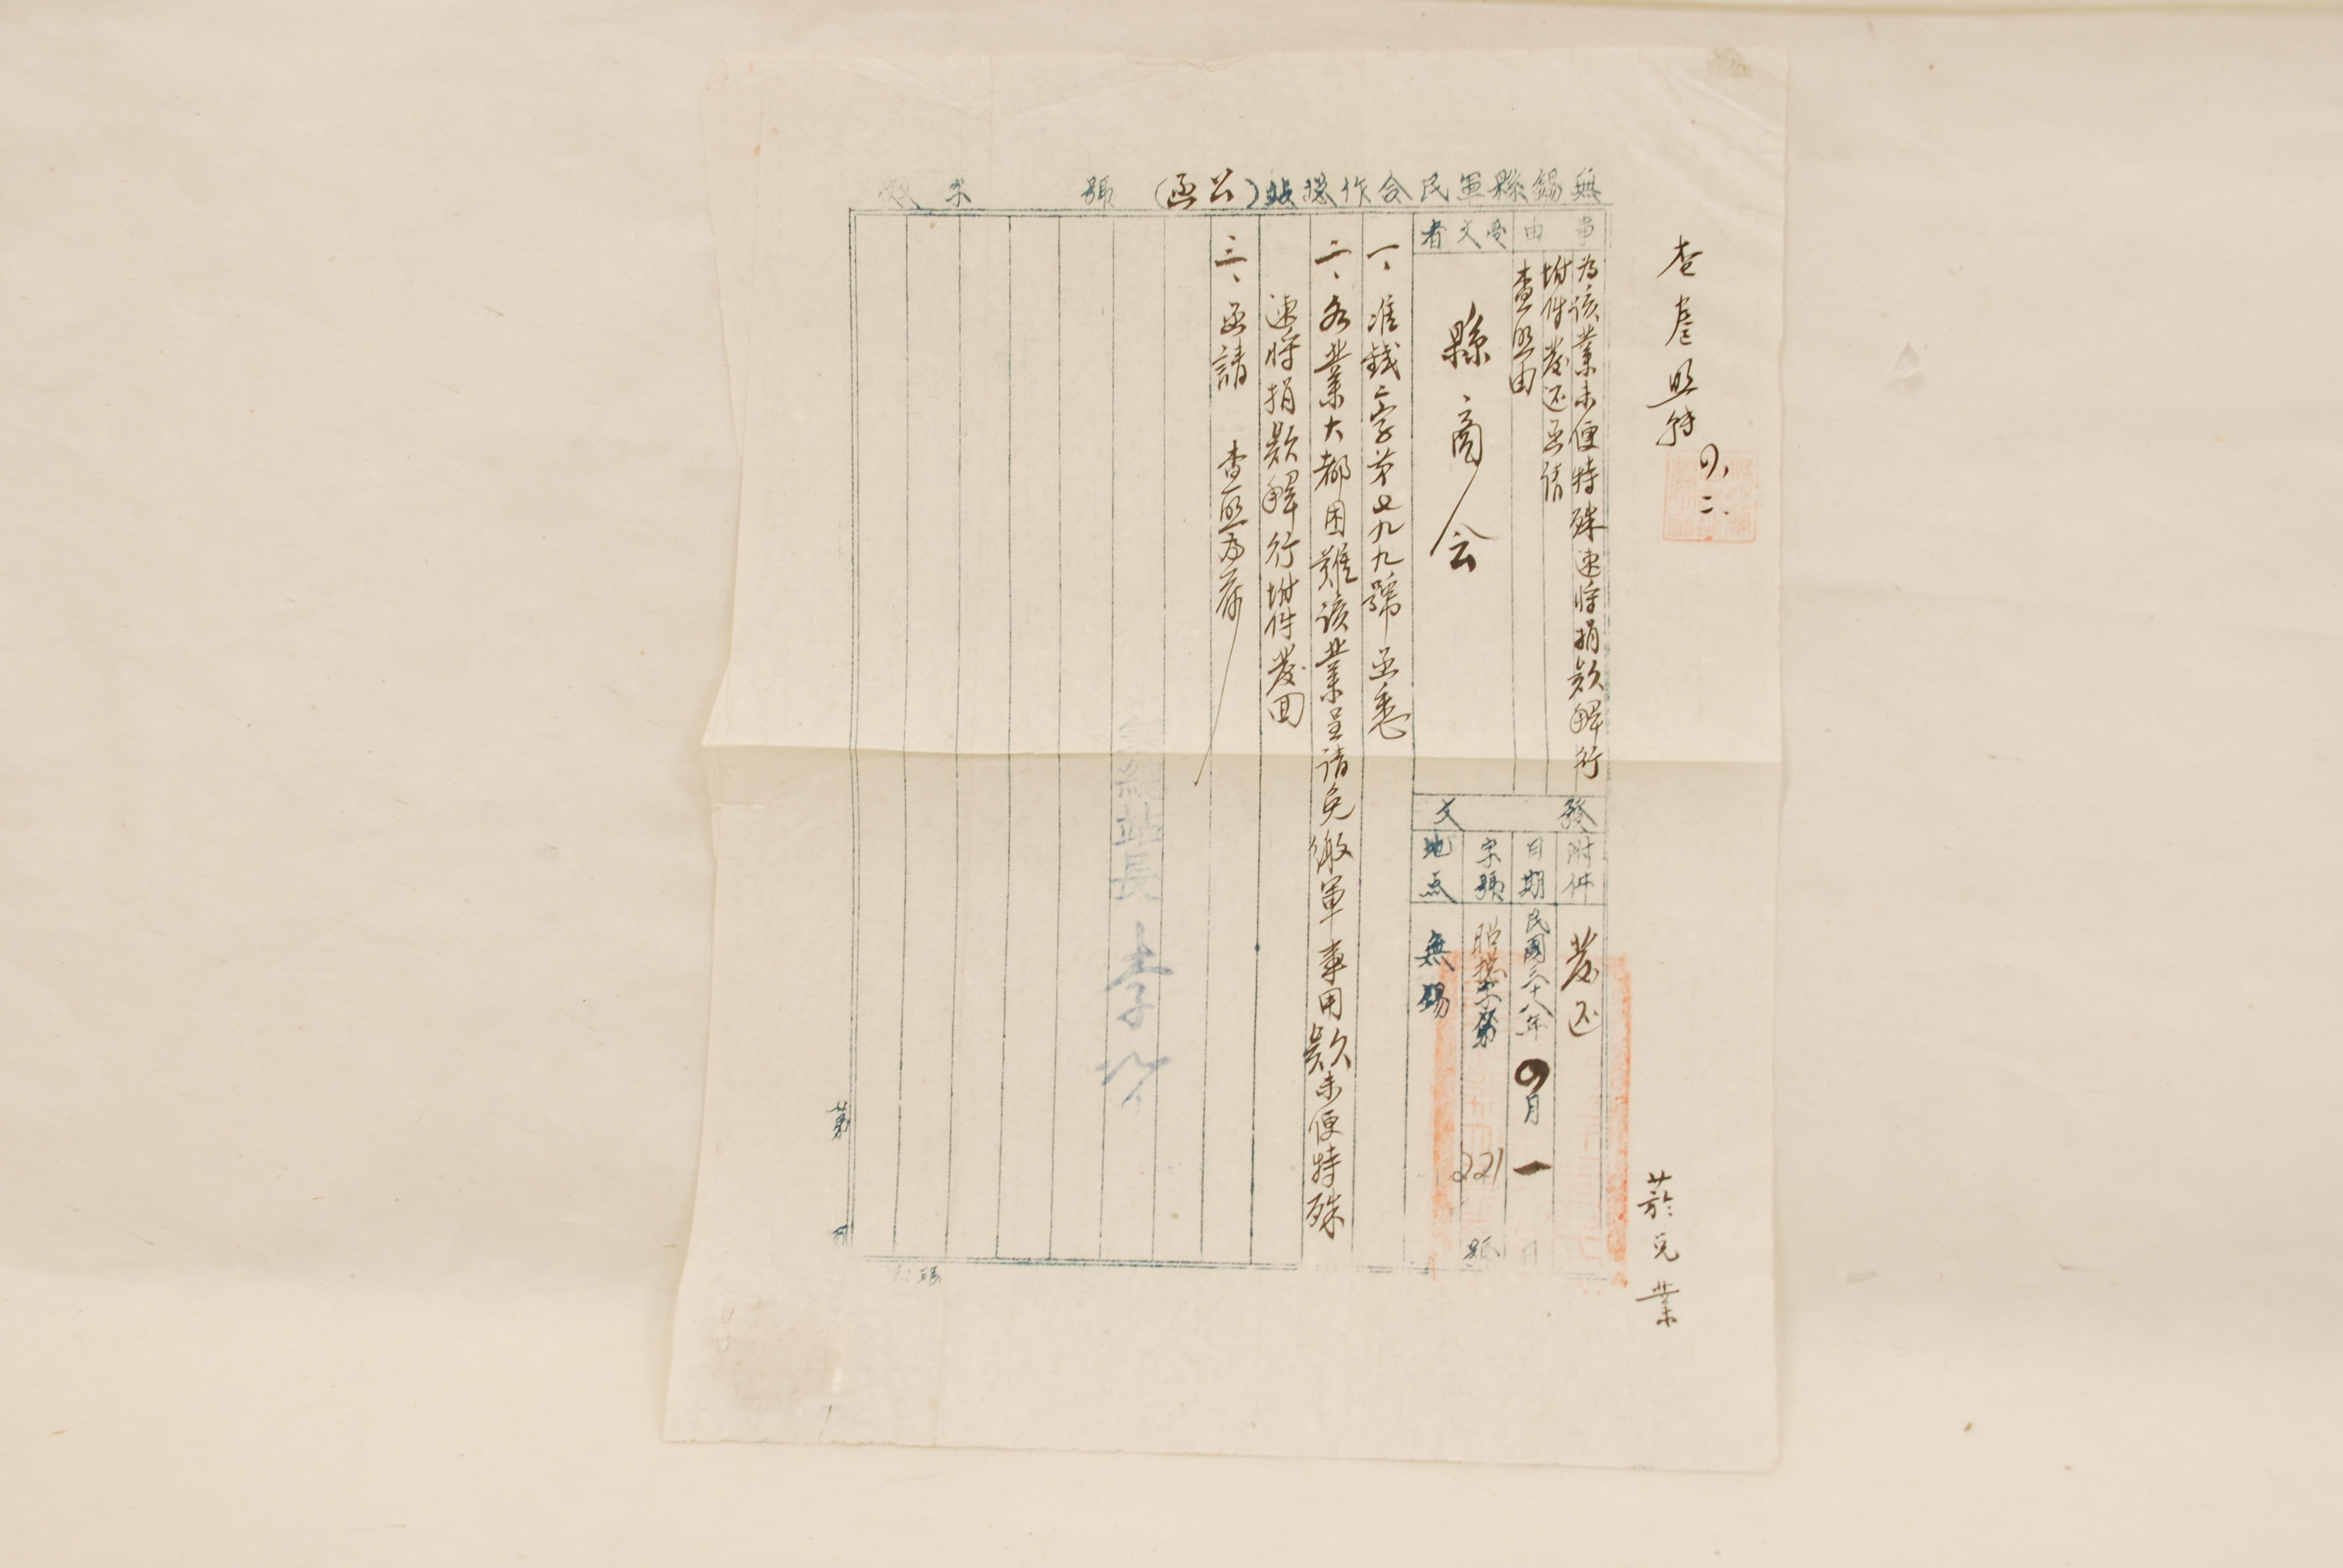 無錫縣軍民合作總站(公函) 號
事由
為該業未便特殊速將捐款解行
附件發还函請
查照由
受文者
縣商会
發文
附件
發还
日期
民國三十八年四月一日
字號
昭總字第221號
地点
無錫
一、准錢字第 九九號函悉
二、各業大都困難該業呈請免繳軍事用款未便特殊
速將捐款解行附件發回
三、函請 查照為荷
總站長李
查
照
四、二、
菸兑業
第
頁